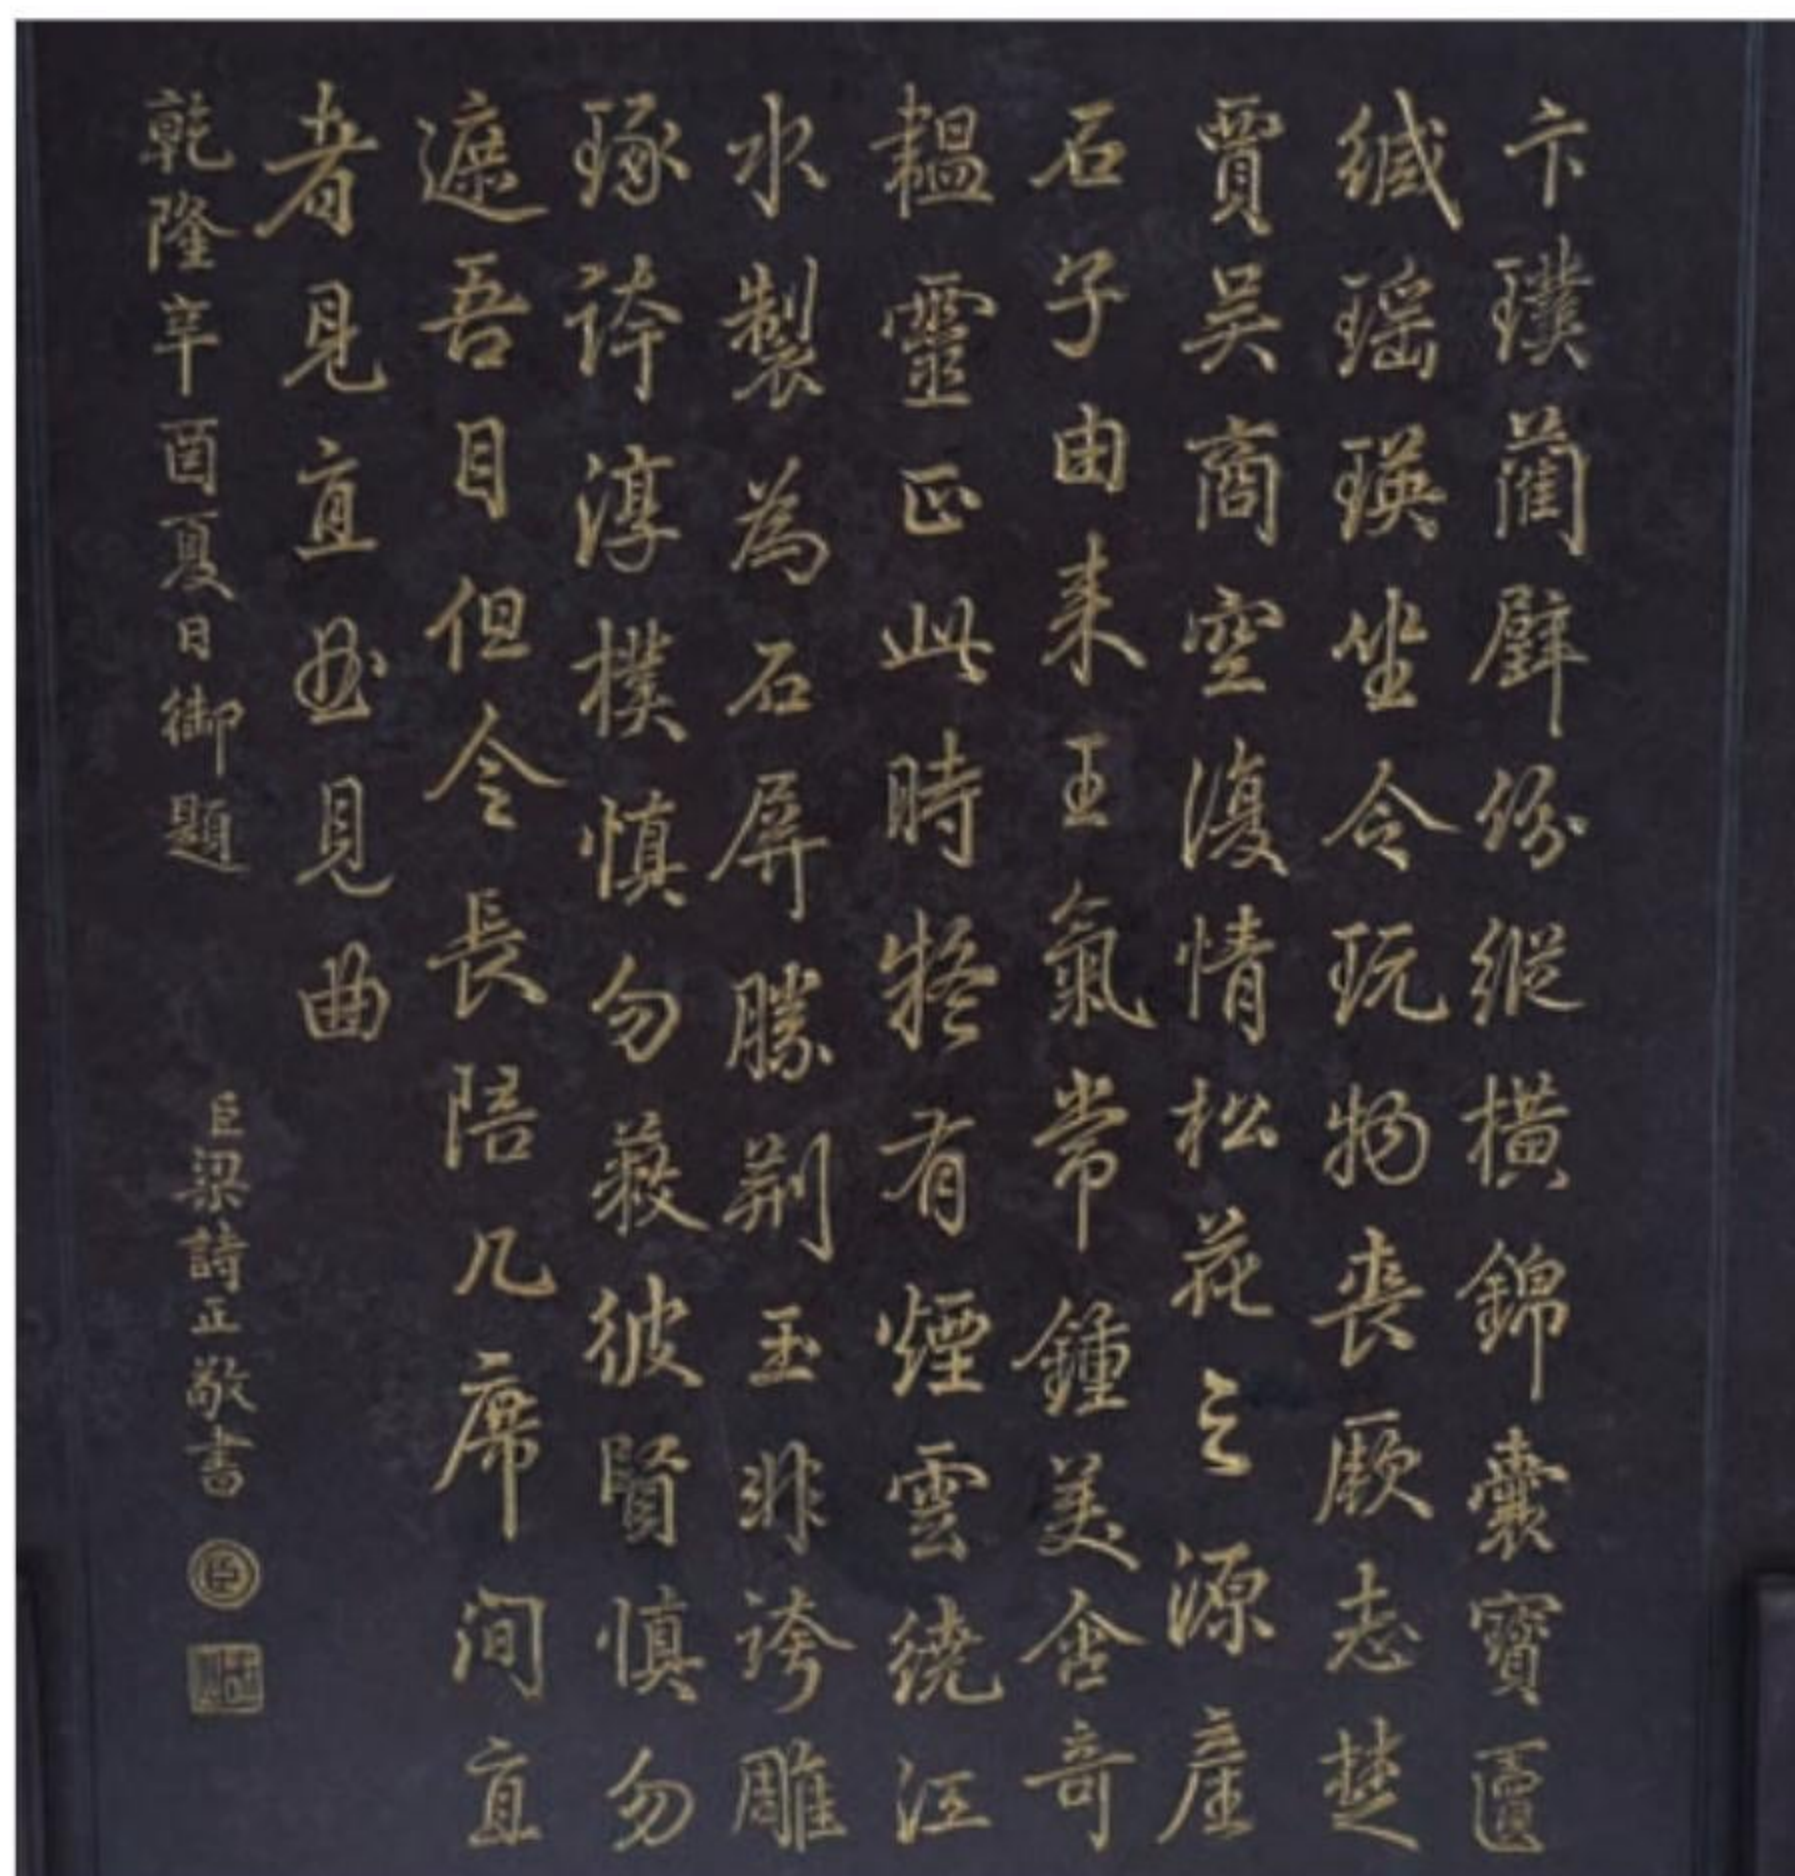 卞璞藺璧紛縱橫錦囊寶匱
緘瑶瑛坐令玩物喪厥志楚
賈吴商空復情松花之源產
石子由来王氣常鍾美含奇
韞靈正此時疑有煙雲繞江
水製為石屏勝荆玉非誇雕
琢誇淳樸慎勿蔽彼賢慎勿
遮吾目但令長陪几席間直
者見直見曲
乾隆辛酉夏日御題
臣梁詩正敬書
臣